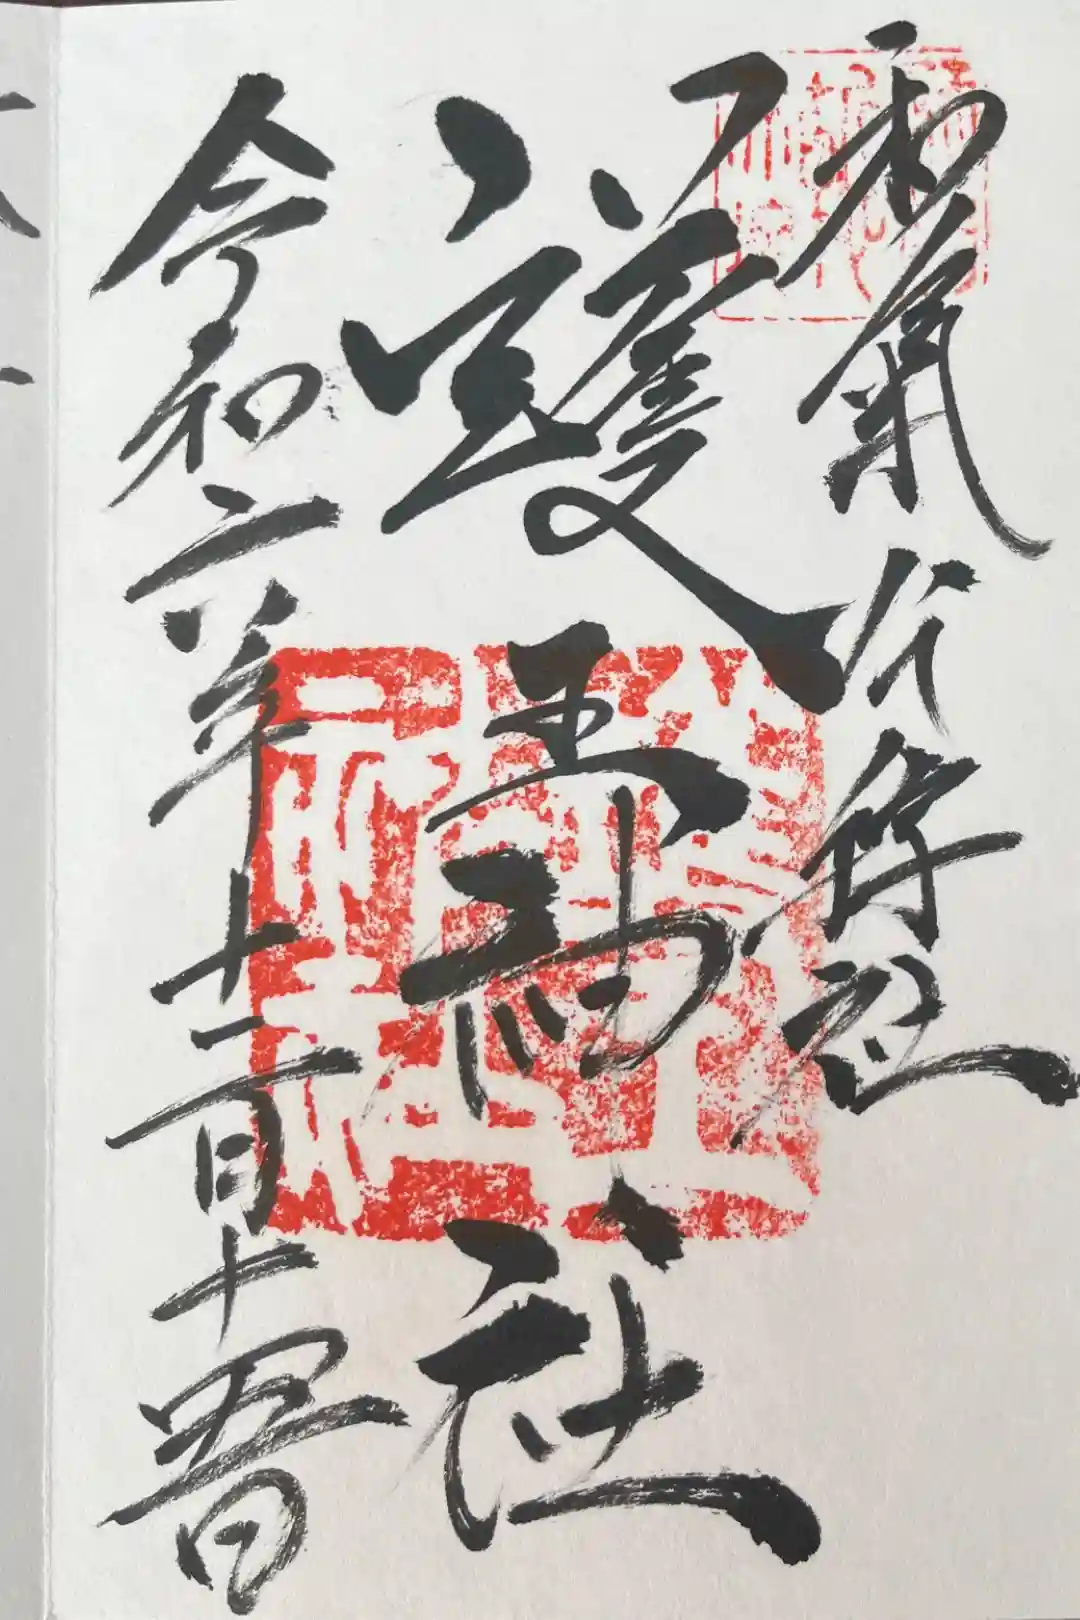 和氣公
護王神社
令和二年十二月十四日